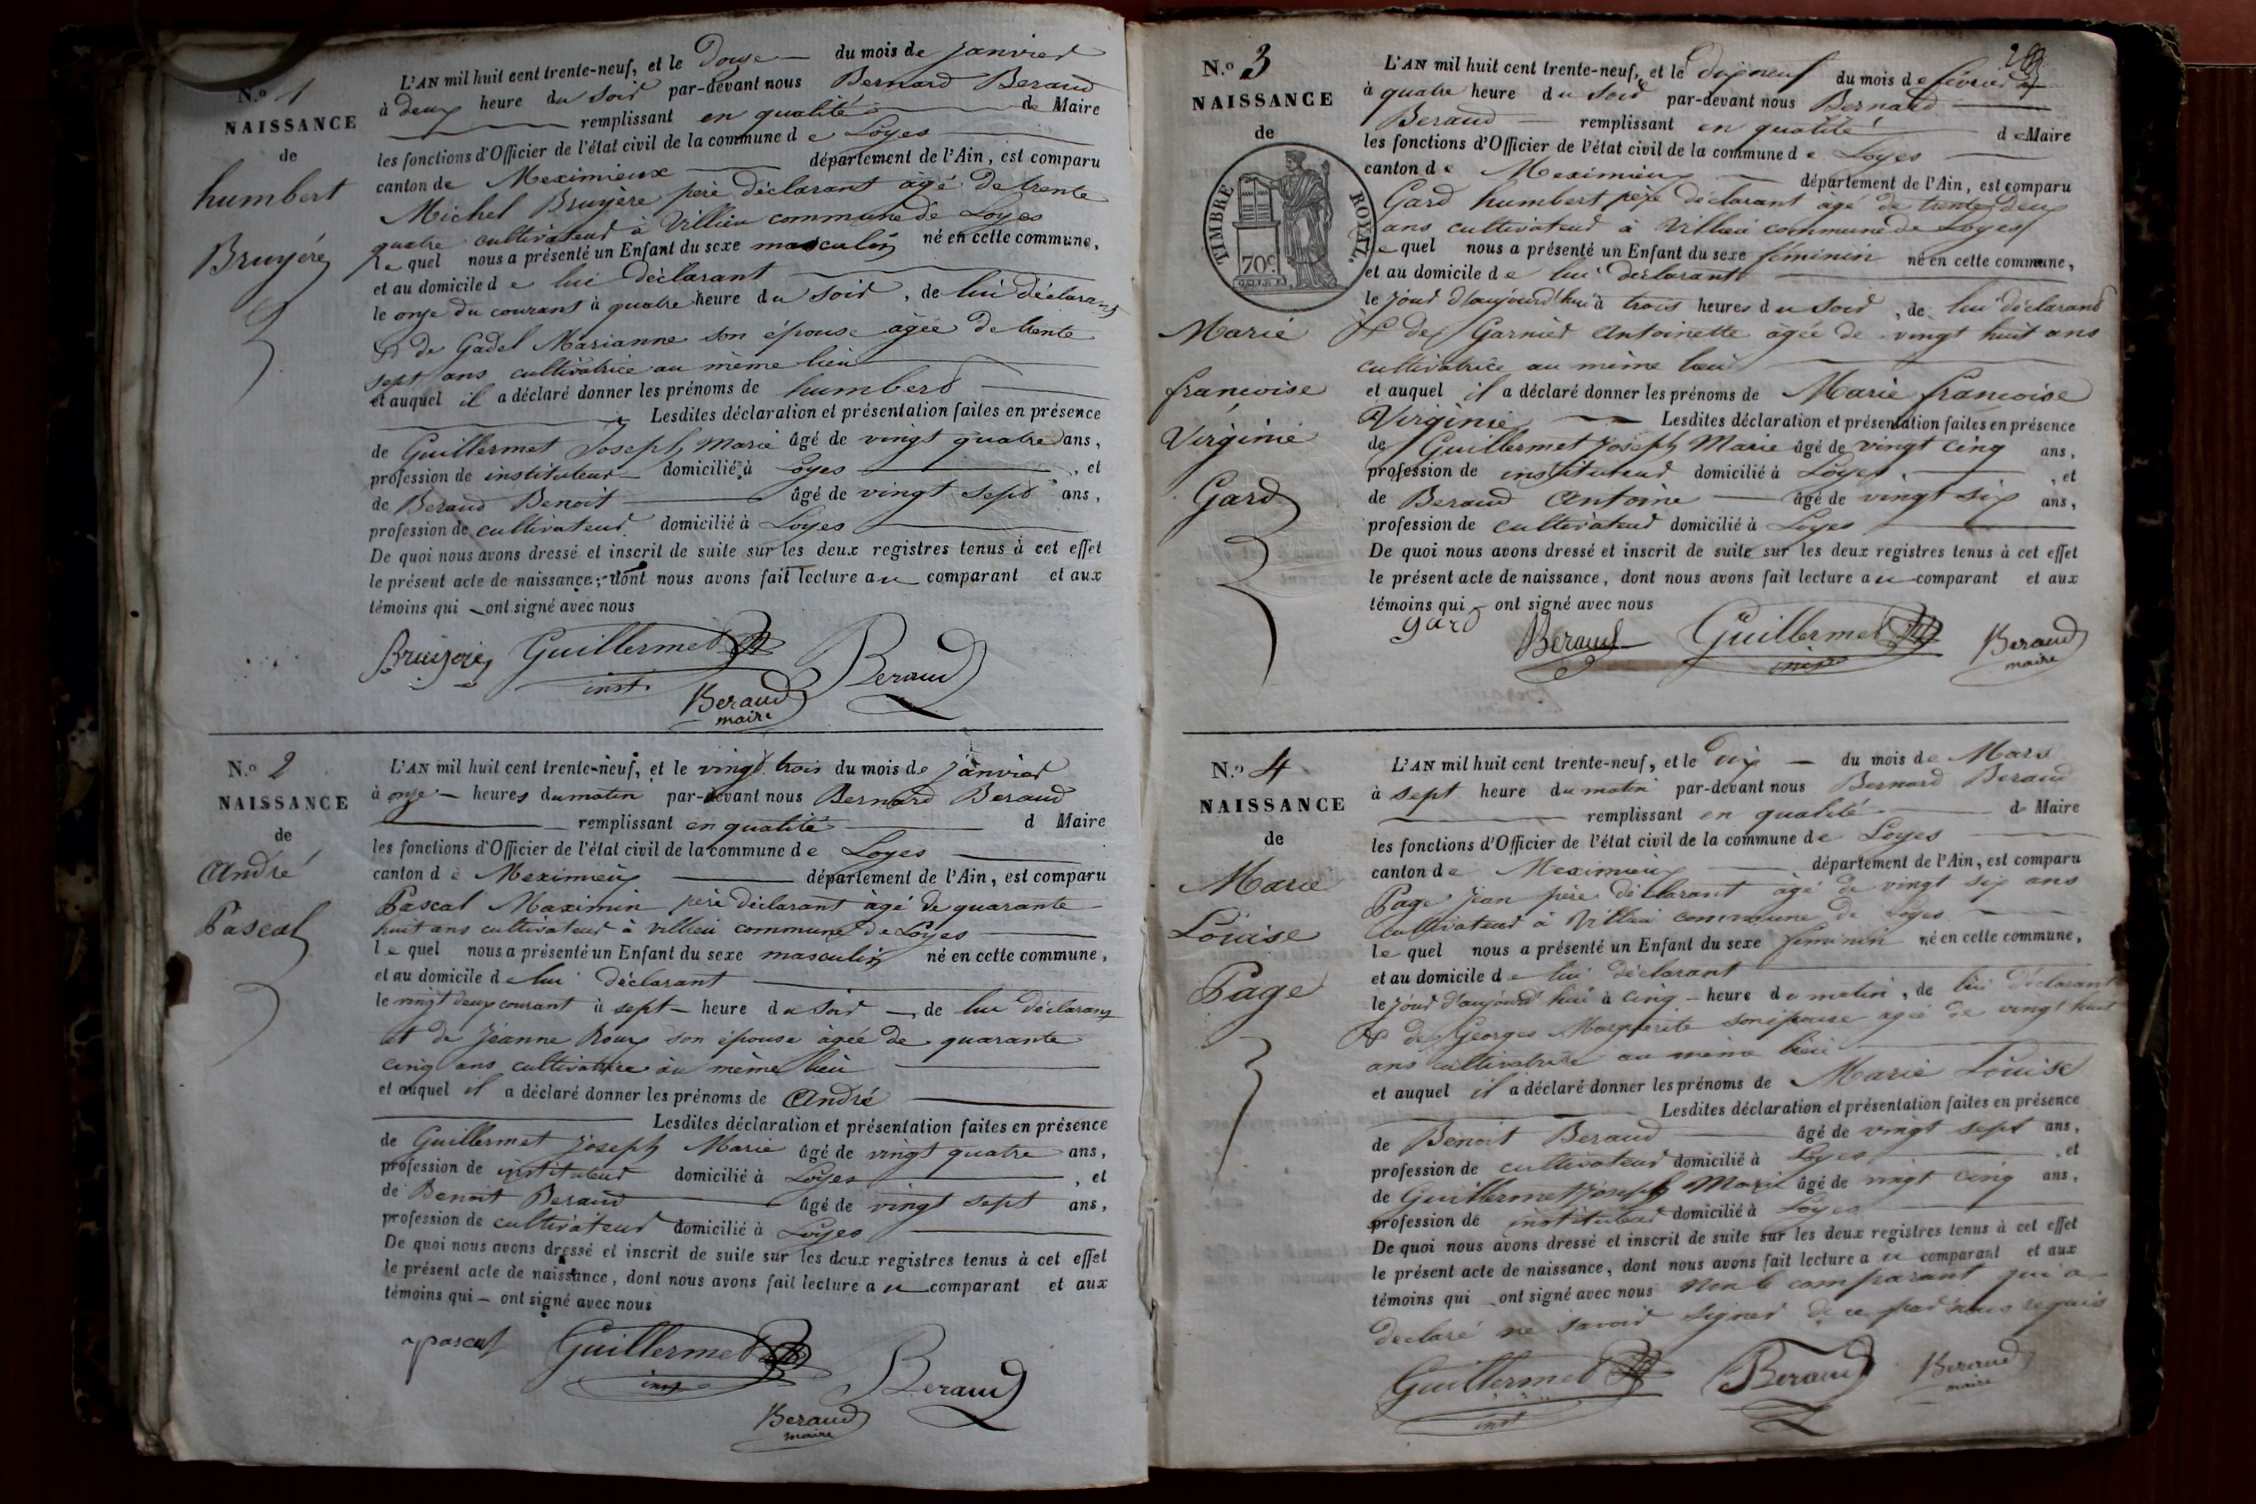 N.o 1
NAISSANCE
de
humbert
Bruyère
L'AN mil huit cent trente-neuf, et le Douze du mois de Janvier
à deux heure du soir par-devant nous Bernard Beraud
remplissant en qualité de Maire
les fonctions d'Officier de l'état civil de la commune de Loyes
canton de Meximieux département de l'Ain, est comparu
Michel Bruyère père déclarant âgé de trente
quatre cultivateur à Villieu commune de Loyes
le quel nous a présenté un Enfant du sexe masculin né en cette commune,
et au domicile de lui déclarant
le onze du courant à quatre heure du soir, de lui déclarant
& de Gadel Marianne son épouse âgée de trente
sept ans cultivatrice au même lieu
et auquel il a déclaré donner les prénoms de humbert
Lesdites déclaration et présentation faites en présence
de Guillermet Joseph Marie âgé de vingt quatre ans,
profession de instituteur domicilié à Loyes, et
de Beraud Benoit âgé de vingt sept ans,
profession de cultivateur domicilié à Loyes
De quoi nous avons dressé et inscrit de suite sur les deux registres tenus à cet effet
le présent acte de naissance, dont nous avons fait lecture au comparant et aux
témoins qui ont signé avec nous
Bruyere Guillermet Beraud
inst.
Beraud
maire
N.o 2
NAISSANCE
de
André
Pascal
L'AN mil huit cent trente-neuf, et le vingt trois du mois de Janvier
à onze heures du matin par-devant nous Bernard Beraud
remplissant en qualité d Maire
les fonctions d'Officier de l'état civil de la commune de Loyes
canton de Meximieux département de l'Ain, est comparu
Pascal Maximin père déclarant âgé de quarante
huit ans cultivateur à villieu commune de Loyes
le quel nous a présenté un Enfant du sexe masculin né en cette commune,
et au domicile de lui déclarant
le vingt deux courant à sept heure du soir, de lui déclarant
et de Jeanne Roux son épouse âgée de quarante
cinq ans cultivatrice au même lieu
et auquel il a déclaré donner les prénoms de André
Lesdites déclaration et présentation faites en présence
de Guillermet Joseph Marie âgé de vingt quatre ans,
profession de instituteur domicilié à Loyes, et
de Benoit Beraud âgé de vingt sept ans,
profession de cultivateur domicilié à Loyes
De quoi nous avons dressé et inscrit de suite sur les deux registres tenus à cet effet
le présent acte de naissance, dont nous avons fait lecture au comparant et aux
témoins qui ont signé avec nous
pascal Guillermet Beraud
inst
Beraud
maire
N.o 3
NAISSANCE
de
TIMBRE ROYAL.
70c
Marie
francoise
Virginie
Gard
L'AN mil huit cent trente-neuf, et le dix neuf du mois de février
à quatre heure du soir par-devant nous Bernard
Beraud remplissant en qualité de Maire
les fonctions d'Officier de l'état civil de la commune de Loyes
canton de Meximieux département de l'Ain, est comparu
Gard humbert père déclarant âgé de trente deux
ans cultivateur à Villieu commune de Loyes
le quel nous a présenté un Enfant du sexe féminin né en cette commune,
et au domicile de lui déclarant
le jour d'aujourd'hui à trois heures du soir, de lui déclarant
& de Garnier Antoinette âgée de vingt huit ans
cultivatrice au même lieu
et auquel il a déclaré donner les prénoms de Marie francoise
Virginie Lesdites déclaration et présentation faites en présence
de Guillermet Joseph Marie âgé de vingt cinq ans,
profession de instituteur domicilié à Loyes, et
de Beraud Antoine âgé de vingt six ans,
profession de cultivateur domicilié à Loyes
De quoi nous avons dressé et inscrit de suite sur les deux registres tenus à cet effet
le présent acte de naissance, dont nous avons fait lecture au comparant et aux
témoins qui ont signé avec nous
gard Beraud Guillermet Beraud
inst maire
N.o 4
NAISSANCE
de
Marie
Louise
Page
L'AN mil huit cent trente-neuf, et le Dix du mois de Mars
à sept heure du matin par-devant nous Bernard Beraud
remplissant en qualité de Maire
les fonctions d'Officier de l'état civil de la commune de Loyes
canton de Meximieux département de l'Ain, est comparu
Page Jean père déclarant âgé de vingt six ans
Cultivateur à Villieu commune de Loyes
le quel nous a présenté un Enfant du sexe féminin né en cette commune,
et au domicile de lui déclarant
le jour d'aujourd'hui à cinq heure du matin, de lui déclarant
& de Georges Marguerite son épouse agée de vingt huit
ans cultivatrice au même lieu
et auquel il a déclaré donner les prénoms de Marie Louise
Lesdites déclaration et présentation faites en présence
de Benoit Beraud âgé de vingt sept ans,
profession de cultivateur domicilié à Loyes, et
de Guillermet Joseph Marie âgé de vingt cinq ans,
profession de instituteur domicilié à Loyes
De quoi nous avons dressé et inscrit de suite sur les deux registres tenus à cet effet
le présent acte de naissance, dont nous avons fait lecture au comparant et aux
témoins qui ont signé avec nous non le comparant qui a
declaré ne savoir signer de ce par nous requis
Guillermet Beraud Beraud
inst maire